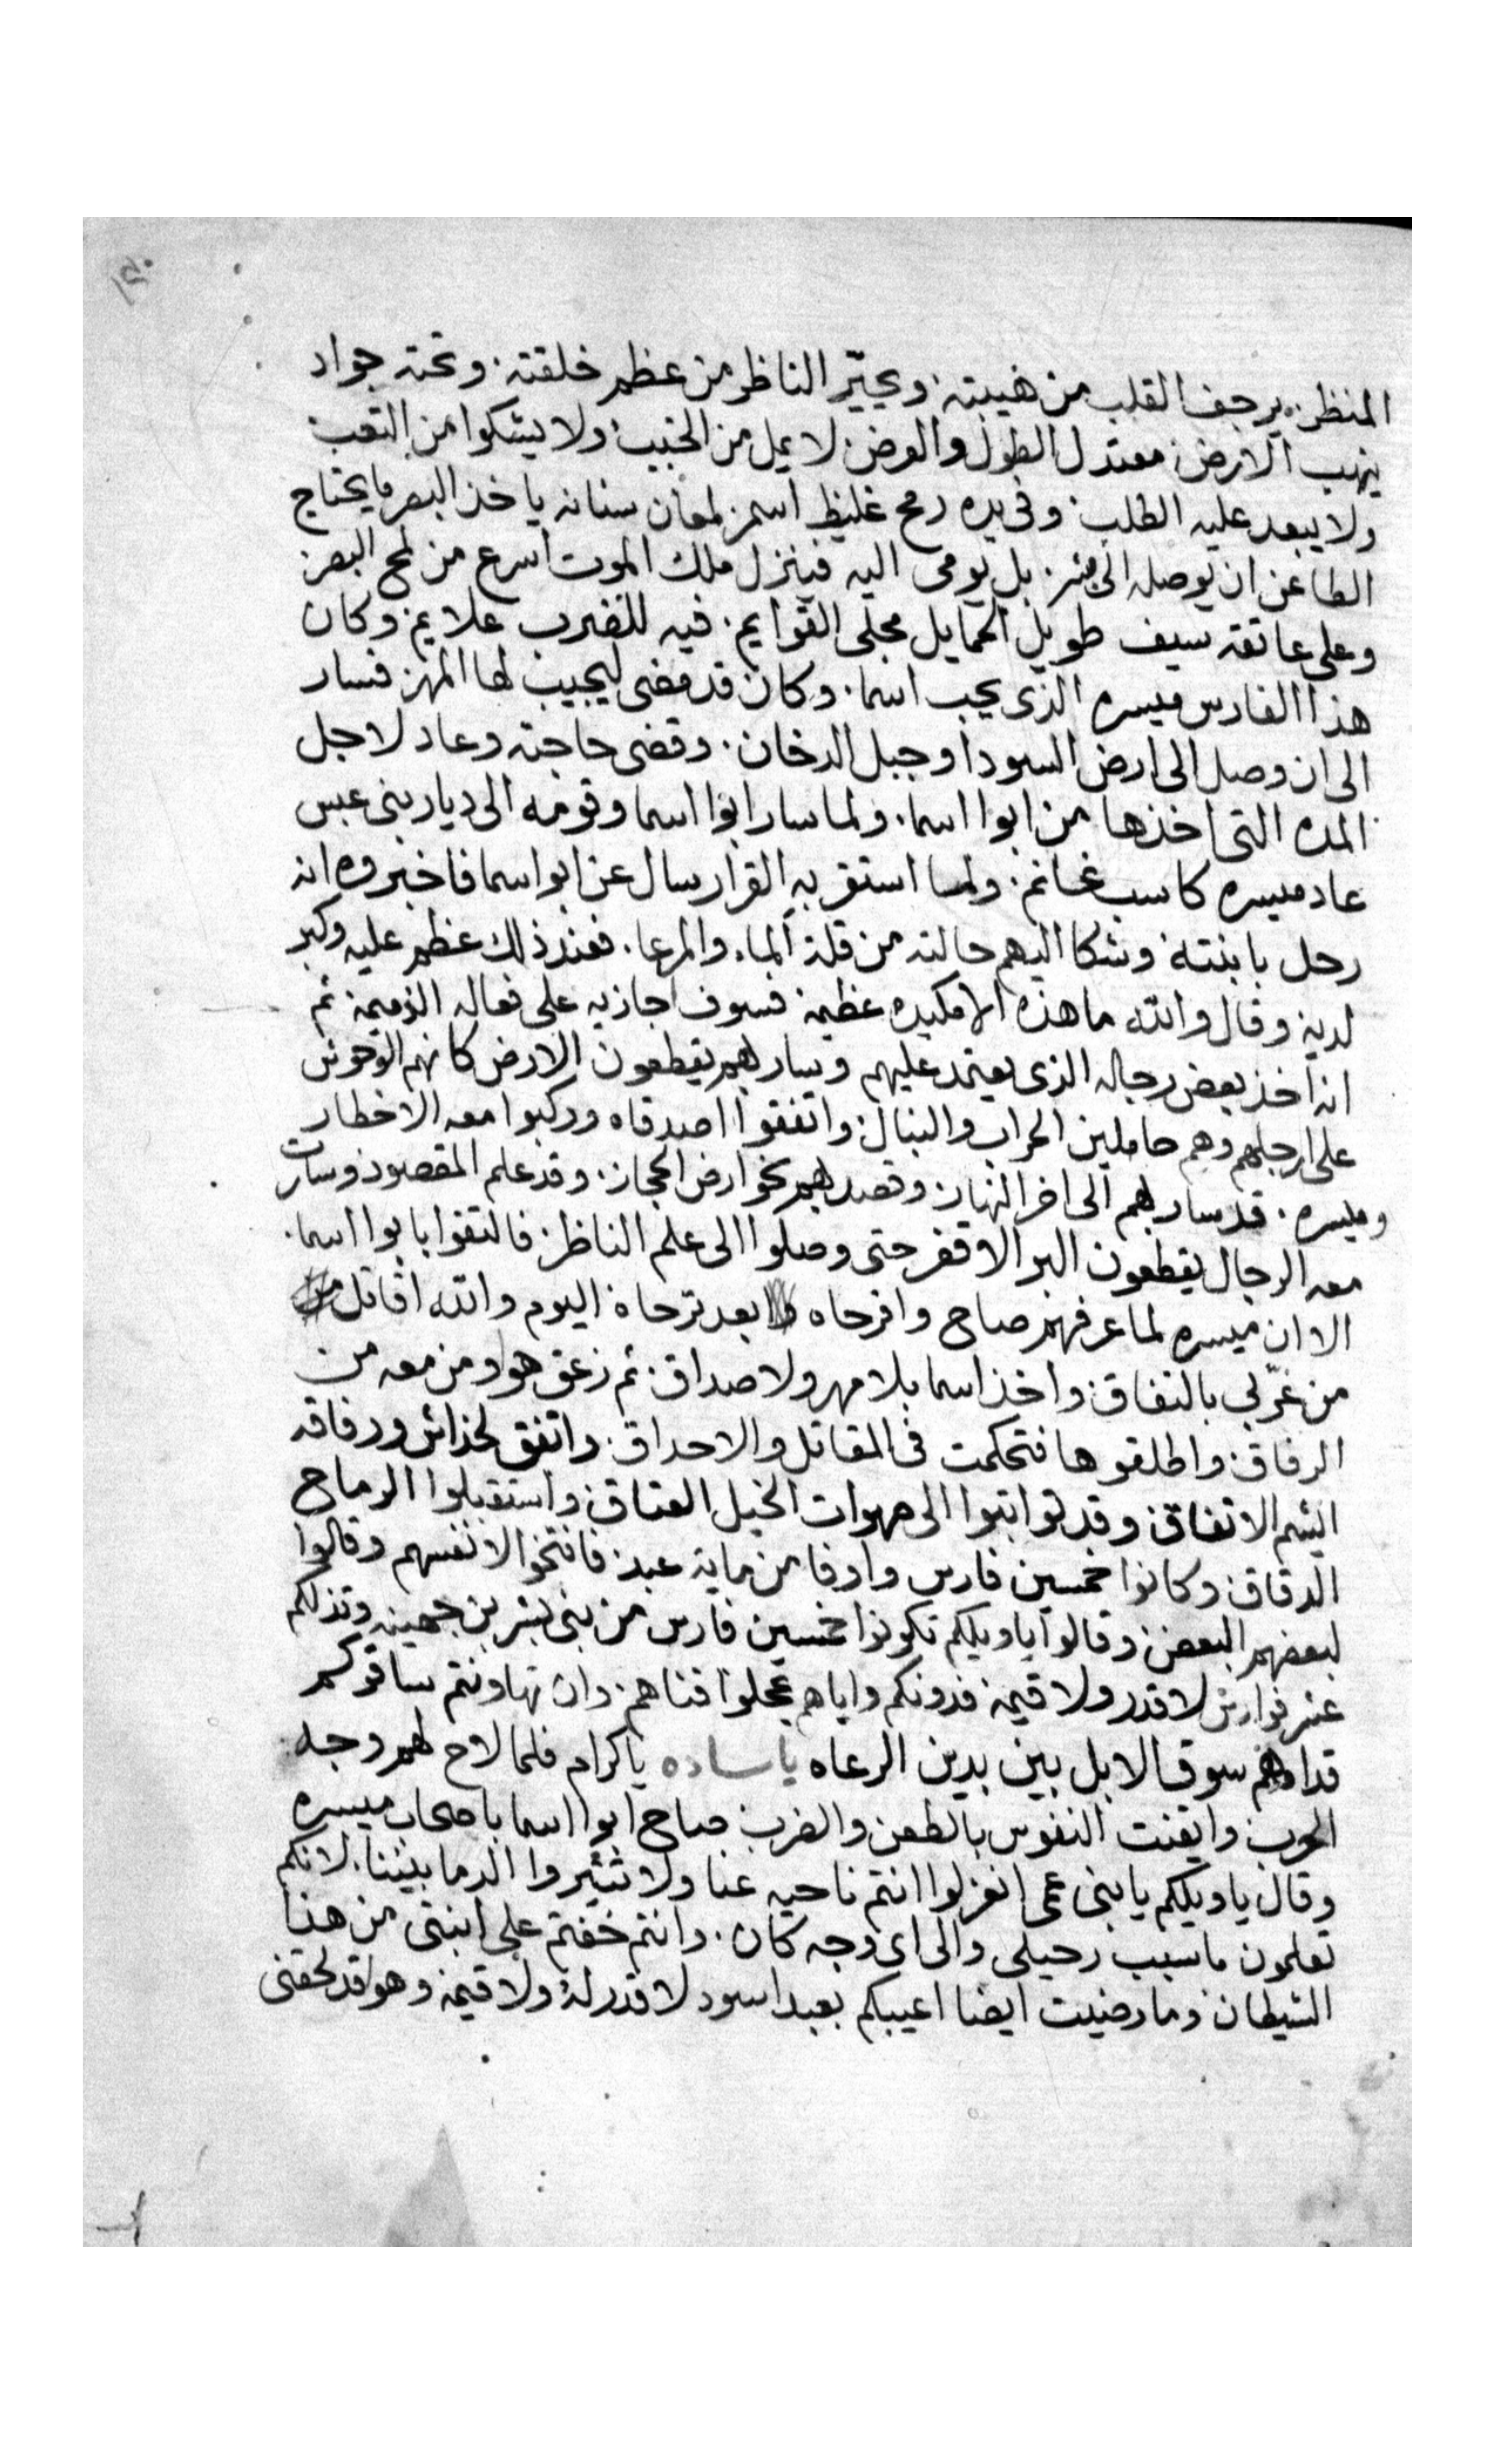 المنظر. يرجف القلب من هيبته. ويحيّر الناظر من عظم خلقته. وتحته جواد
ينهب الارض. معتدل الطول والعرض. لا يمل من الخبيب. ولا يشكوا من التعب
ولا يبعد عليه الطلب. وفي يده رمح غليظ اسمر. لمعان سنانه ياخذ البصر ما يحتاج
الطاعن ان يوصله الى بشر. بل يومى اليه فينزل ملك الموت اسرع من لمح البصر.
وعلى عاتقه سيف طويل الحمايل مجلى القوايم. فيه للضرب علايم. وكان
هذا الفارس ميسره الذى يحب اسما. وكان قد مضى ليجيب لها المهر. فسار
الى ان وصل الى ارض السودا وجبل الدخان. وقضى حاجته وعاد لاجل
المده التى اخذها من ابوا اسما. ولما سار ابوا اسما وقومه الى ديار بنى عبس
عاد ميسره كاسب غانم. ولما استقر به القرار سال عن ابو اسما فاخبروه انه
رحل بابنته وشكا اليهم حالته من قلة الماء والمرعا. فعند ذلك عظم عليه وكبر
لديه وقال والله ما هذه الا مكيده عظيمة فسوف اجازيه على فعاله الذميمة ثم
انه اخذ بعض رجاله الذى يعتمد عليهم وسار بهم يقطعون الارض كانهم الوحوش
على ارجلهم وهم حاملين الحراب والنبال. واتفقوا اصدقاه وركبوا معه الاخطار
وميسره. قد سار بهم الى اخر النهار. وقصد بهم نحو ارض الحجاز. وقد علم المقصود وسارت
معه الرجال يقطعون البر الاقفر حتى وصلوا الى علم الناظر. فالتقوا بابوا اسما.
الا ان ميسره لما عرفهم صاح وافرحاه بعد ترحاه اليوم والله اقاتل
من غرّبى بالنفاق. واخذ اسما بلا مهر ولا صداق. ثم زعق هو ومن معه من
الرفاق. واطلقوها فتحكمت فى المقاتل والاحداق. واتفق لخذائن ورفاقه
اليشم الاتفاق. وقد تواثبوا الى صهوات الخيل العتاق. واستقبلوا الرماح
الدقاق. وكانوا خمسين فارس واوفا من ماية عبد. فانتخوا لانفسهم وقالوا
لبعضهم البعض. وقالوا يا ويلكم تكونوا خمسين فارس من بنى بشر بن جهينه وتذلكم
عشر فوارش لا قدر ولا قيمة فدونكم واياهم عجلوا فناهم. وان تهاونتم ساقوكم
قدامهم سوق الابل بين يدين الرعاه يا ساده يا كرام فلما لاح لهم وجه
الحرب. وايقنت النفوس بالطعن والضرب صاح ابوا اسما باصحاب ميسره
وقال يا ويلكم يا بنى عمى انعزلوا انتم ناحيه عنا ولا تثيروا الدما بيننا. لانكم
تعلمون ما سبب رحيلى والى اى وجه كان. وانتم خفتم على ابنتى من هذا
الشيطان وما رضيت ايضا اعيبكم بعبد اسود لا قدر له ولا قيمة وهو قد لحقنى